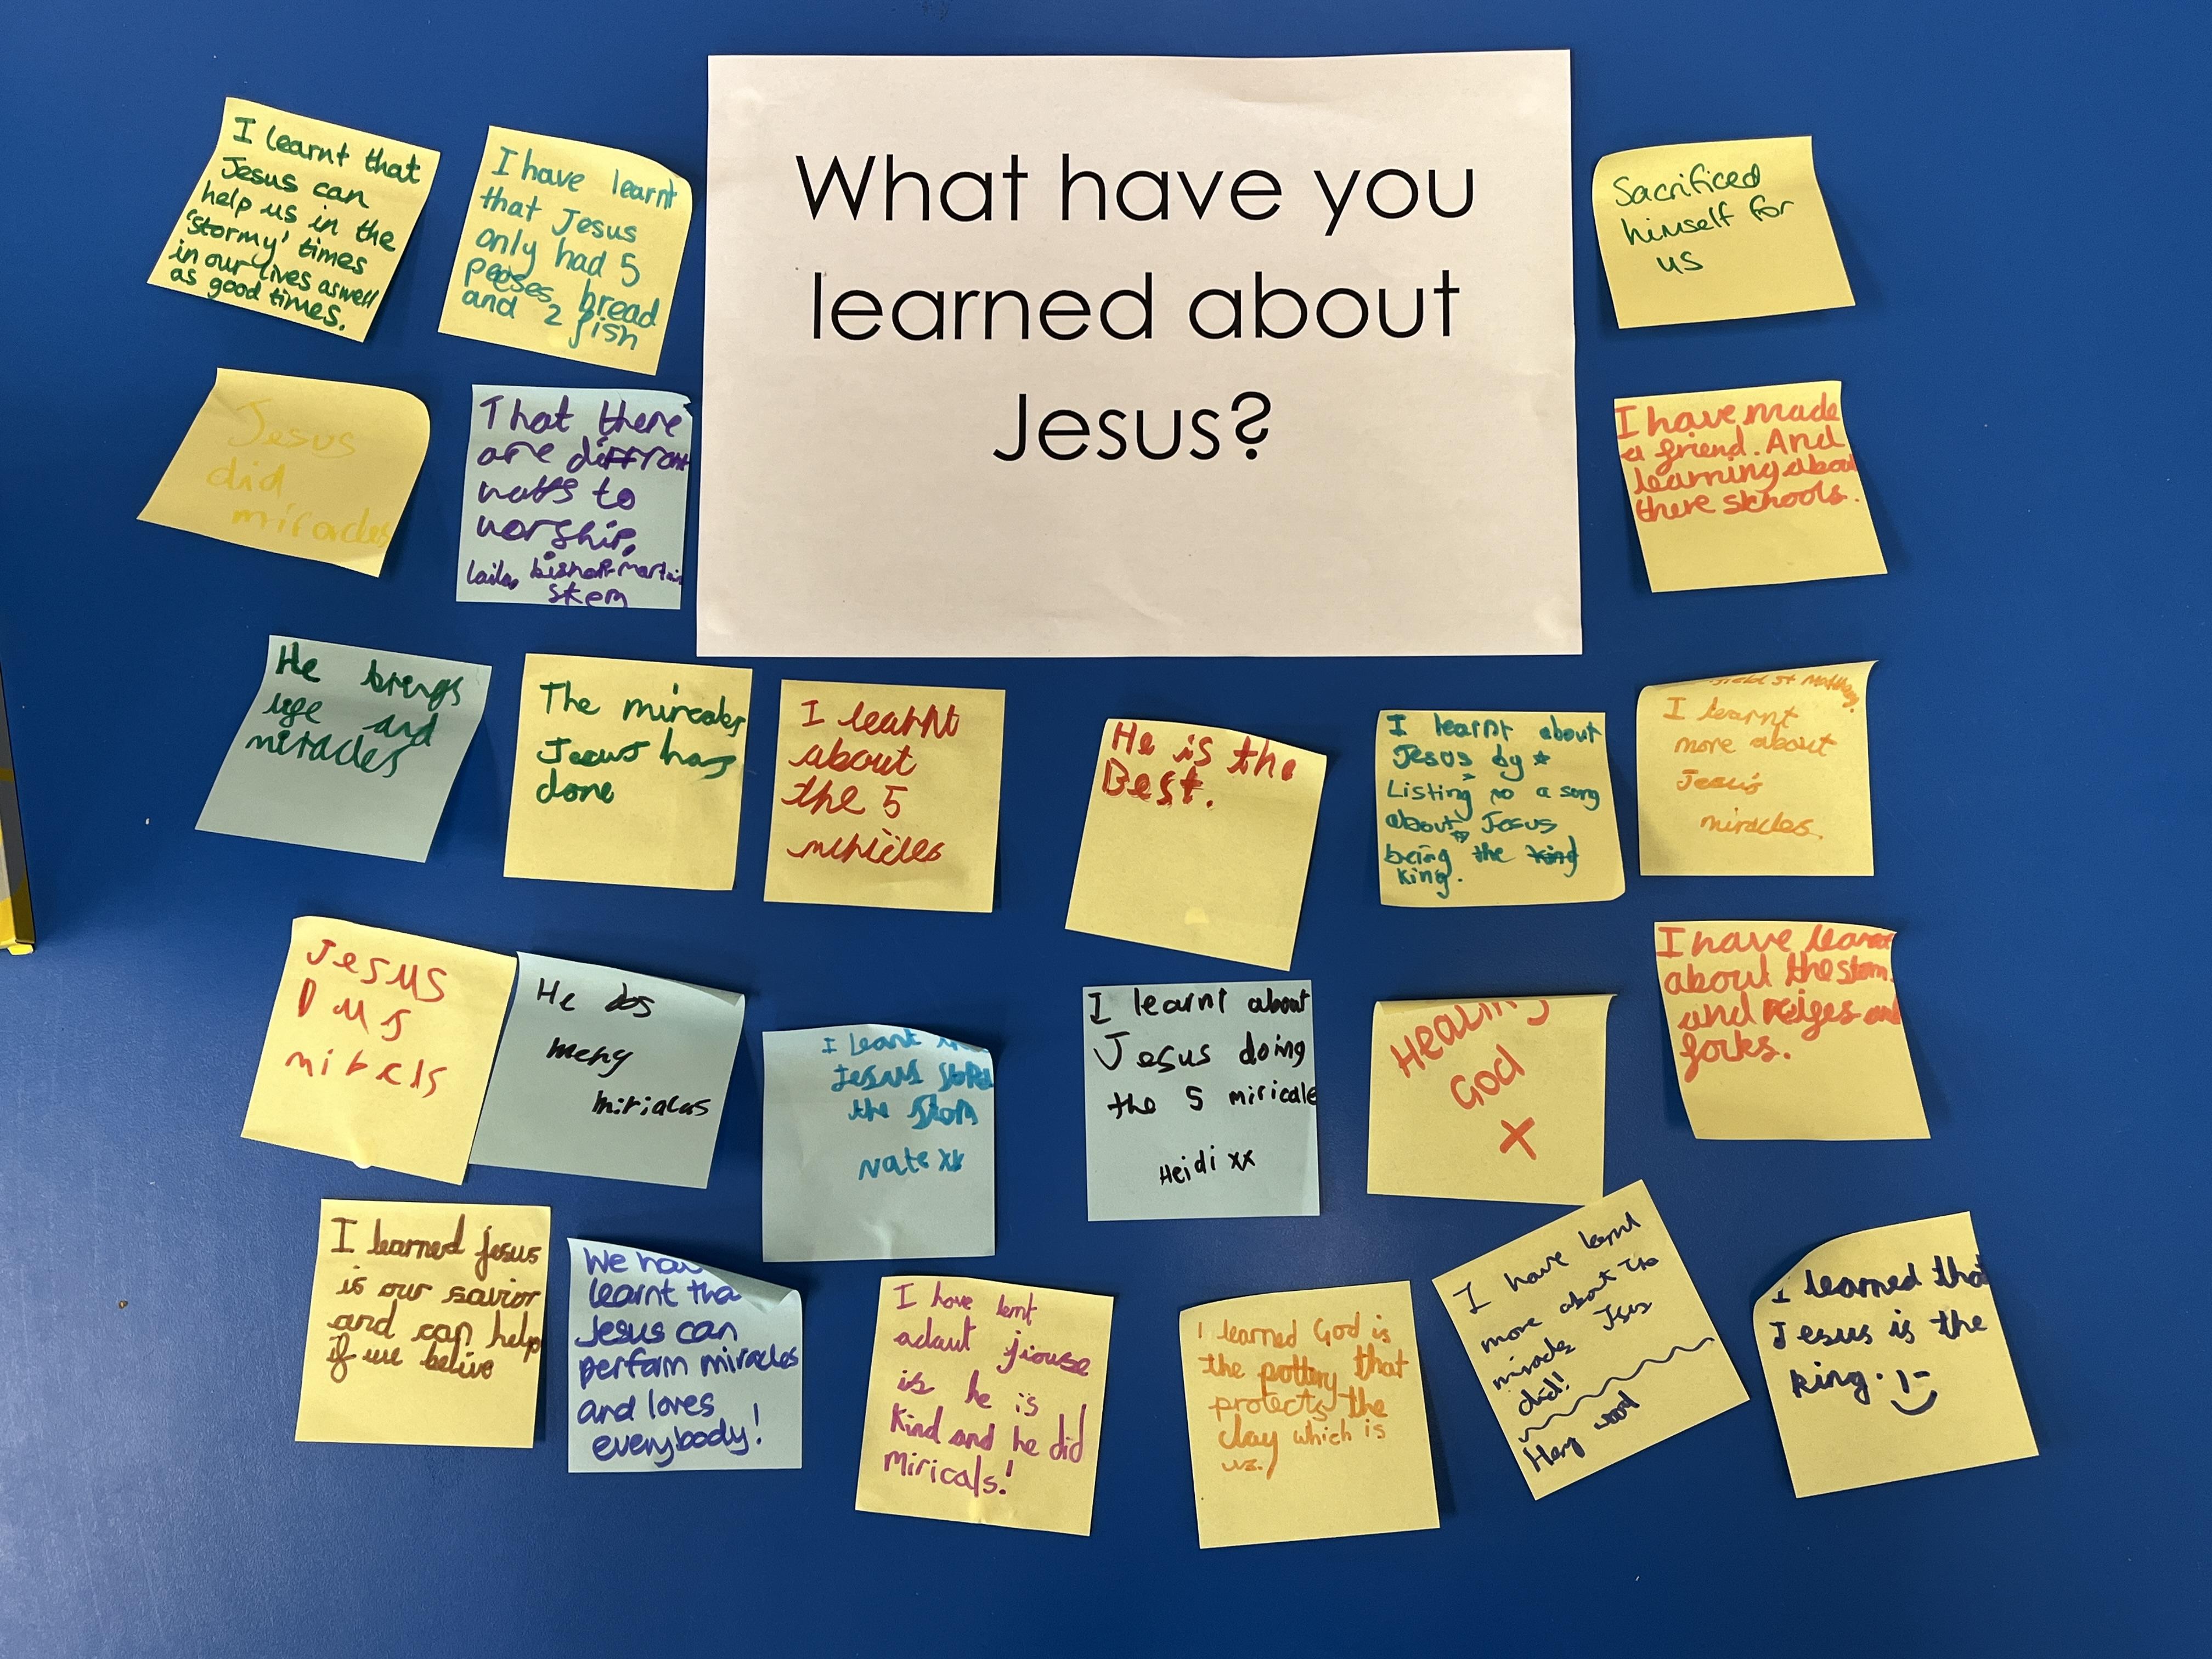 What have you
learned about
Jesus?
I learnt that
Jesus can
help us in the
'stormy' times
in our lives aswell
as good times.
I have learnt
that Jesus
only had 5
peeses bread
and 2 fish
Sacrificed
himself for
us
Jesus
did
miracles
That there
are
ways to
worship.
Laila,
skem
I have made
a friend. And
learning about
there skhools.
He brings
life and
miracles
The
Jesus has
done
I learnt
about
the 5
He is the
Best.
I learnt about
Jesus by
Listing to a song
about Jesus
being the king
king.
field St Matthews
I learnt
more about
Jesus
miracles.
Jesus
Dus
mirecls
He dos
meny
mirialas
I leant
Jesus
the storm
Nate xx
I learnt about
Jesus doing
the 5 miricale
Heidi xx
Healing
God
X
I have
about the storm.
and
forks.
I learned jesus
is our savior
and can help
if we belive
We have
learnt tha
Jesus can
perfom miracles
and loves
everybody!
I have lernt
adaut jiouse
is he is
kind and he did
miricals!
I learned God is
the pottery that
protects the
clay which is
us.
I have lernt
more about
Jesus
did!
I learned that
Jesus is the
king. :-)